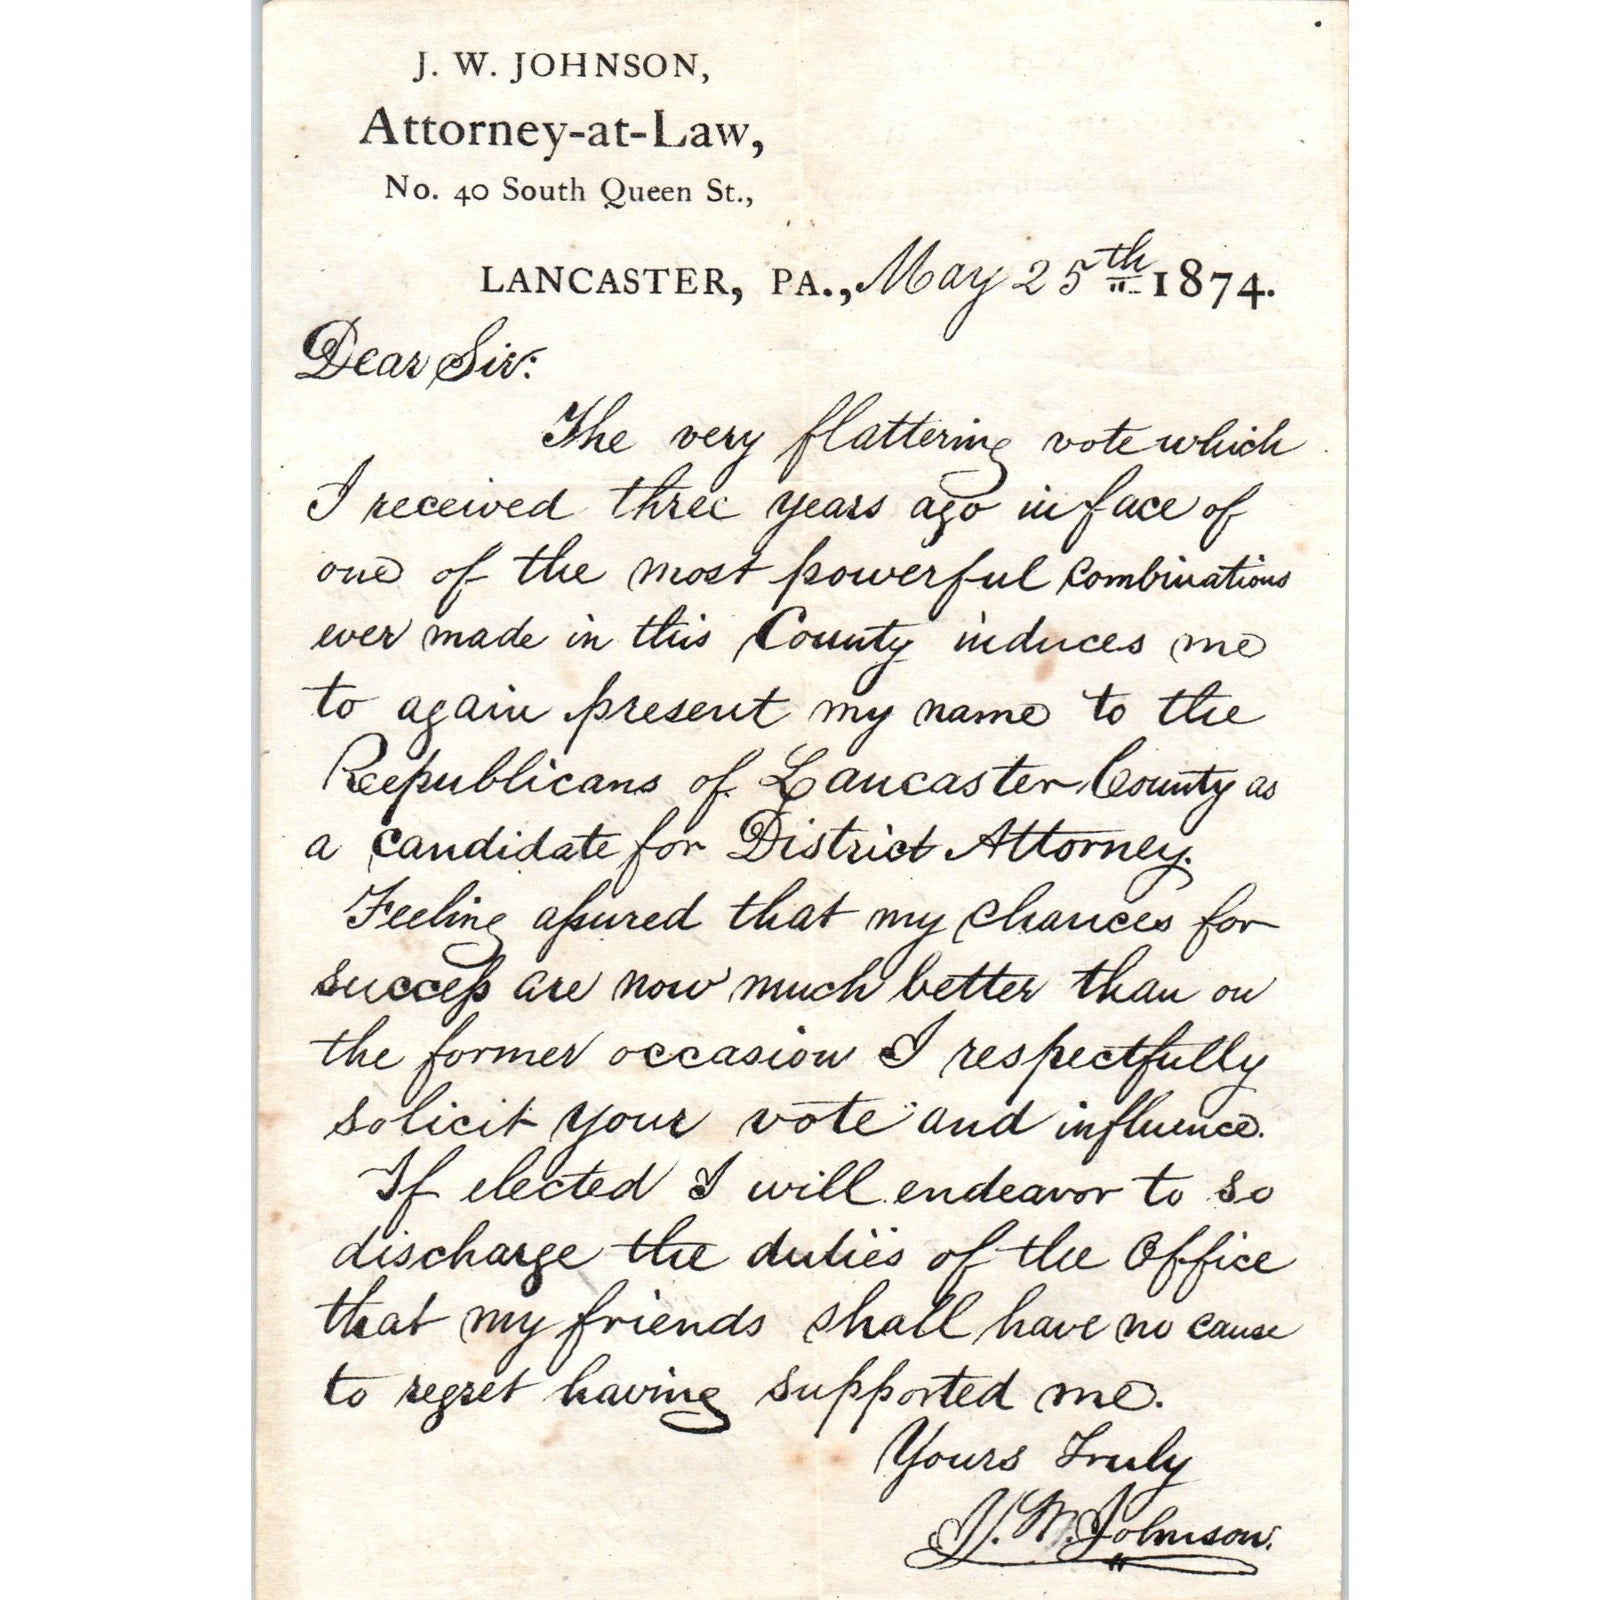 J. W. JOHNSON,
Attorney-at-Law,
No. 40 South Queen St.,
LANCASTER, PA., May 25th 1874.
Dear Sir:
The very flattering vote which
I received three years ago in face of
one of the most powerful combinations
ever made in this County induces me
to again present my name to the
Republicans of Lancaster County as
a candidate for District Attorney.
Feeling assured that my chances for
success are now much better than on
the former occasion I respectfully
solicit your vote and influence.
If elected I will endeavor to so
discharge the duties of the Office
that my friends shall have no cause
to regret having supported me.
Yours Truly
J. W. Johnson.